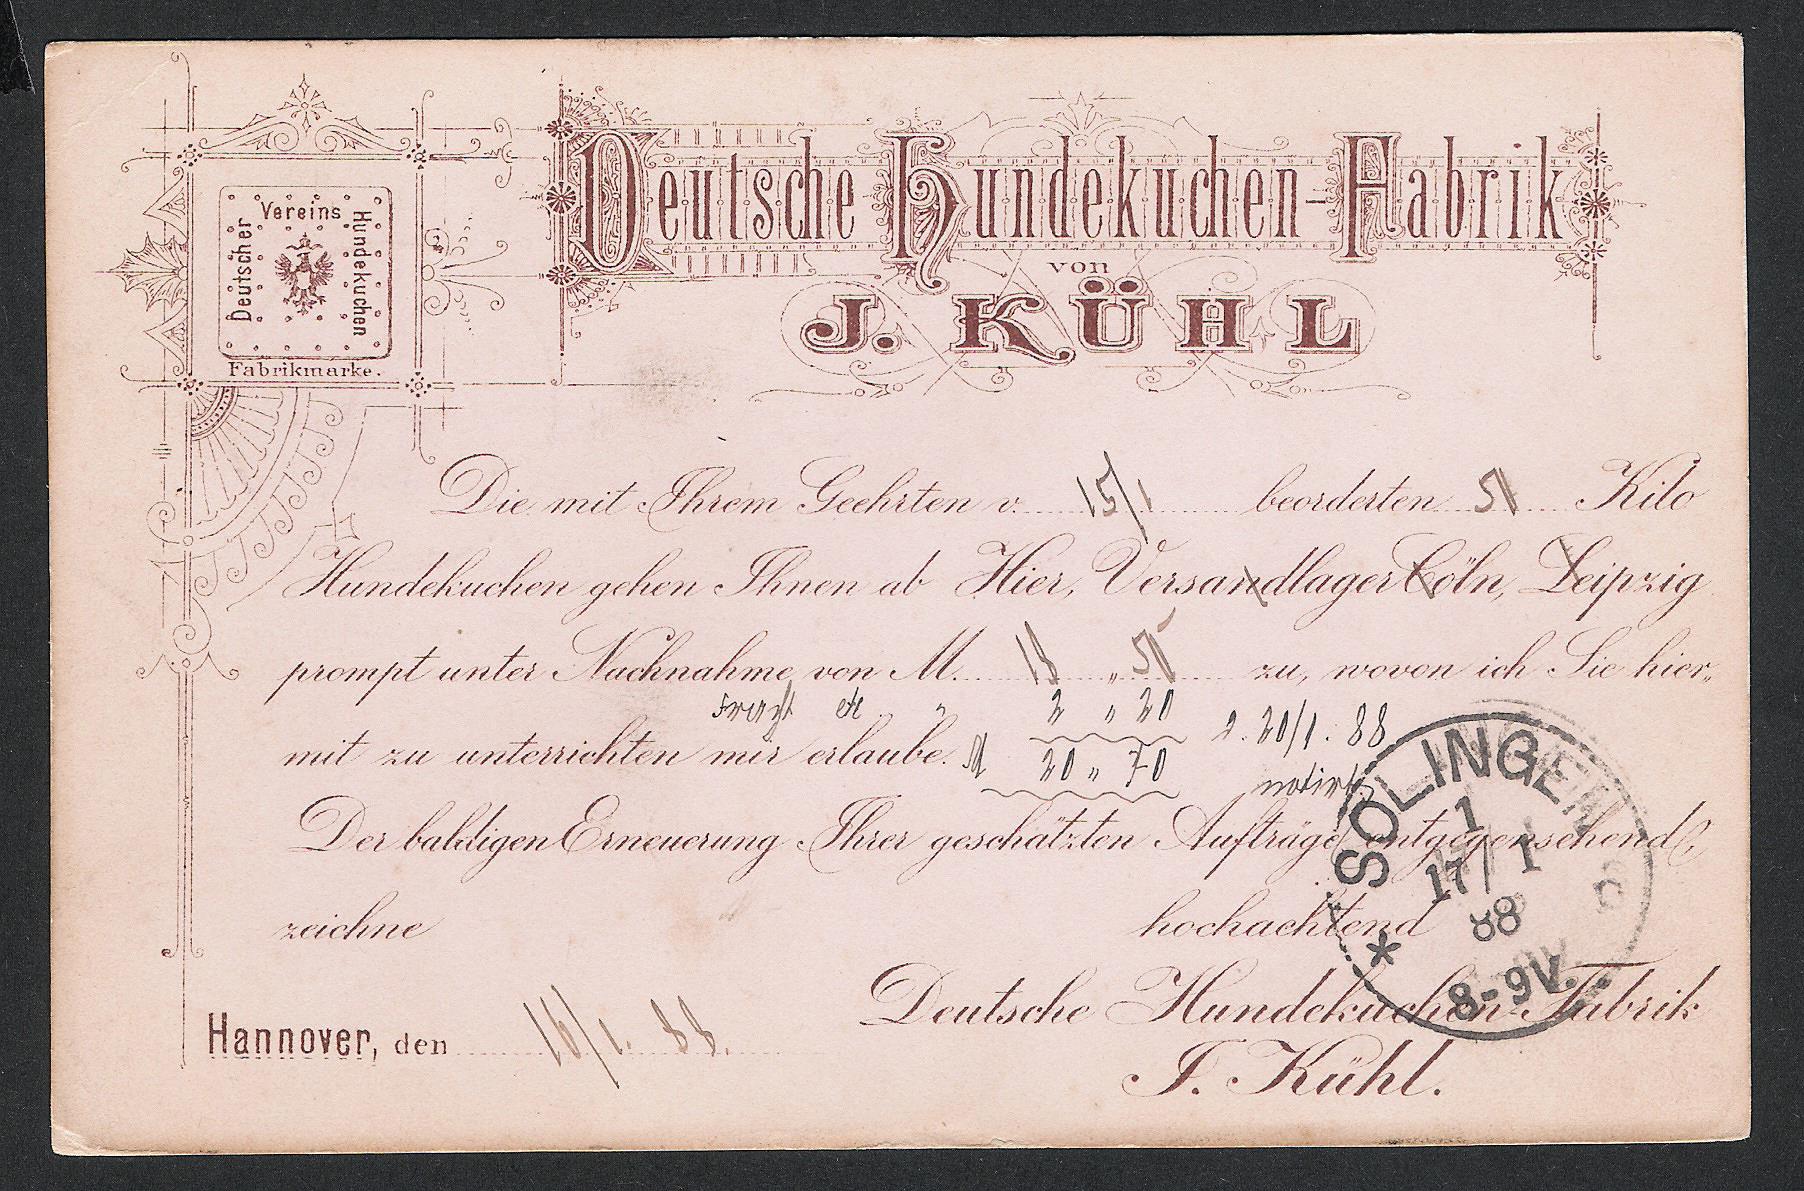 Deutsche Hundekuchen-Fabrik
von
J. KÜHL
Deutscher Vereins Hundekuchen
Fabrikmarke.
Die mit Ihrem Geehrten v. 15/1 beorderten 50 Kilo
Hundekuchen gehen Ihnen ab Hier, Versandlager Cöln, Leipzig
prompt unter Nachnahme von M. 18 „ 50 zu, wovon ich Sie hier-
Fracht etc „ 2 „ 20
mit zu unterrichten mir erlaube. M 20 „ 70
d. 20/1. 88
notirt.
Der baldigen Erneuerung Ihrer geschätzten Aufträge entgegensehend,
zeichne hochachtend
Deutsche Hundekuchen-Fabrik
Hannover, den 16/1. 88.
J. Kühl.
SOLINGEN
1
17/1
88
8-9V.
*